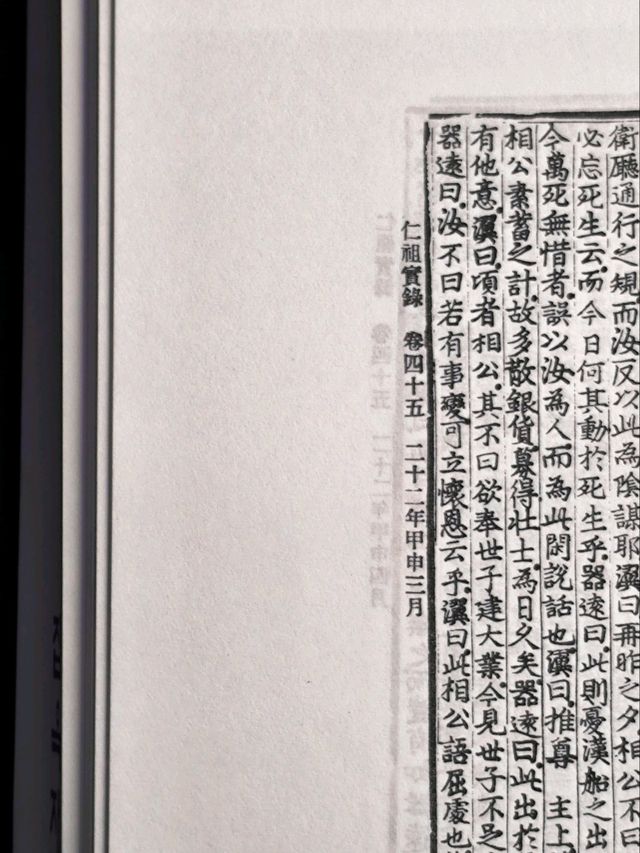 衛廳通行之規而汝反以此為陰謀耶瀷曰再昨之夕相公不曰
必忘死生云而今日何其動於死生乎器遠曰此則憂漢船之出
今萬死無惜者誤以汝為人而為此閑說話也瀷曰推尊 主上
相公素蓄之計故多散銀貨募得壯士為日久矣器遠曰此出於
有他意瀷曰頃者相公其不曰欲奉世子建大業今見世子不足
器遠曰汝不曰若有事變可立懷恩云乎瀷曰此相公語屈處也
仁祖實錄 卷四十五 二十二年甲申三月